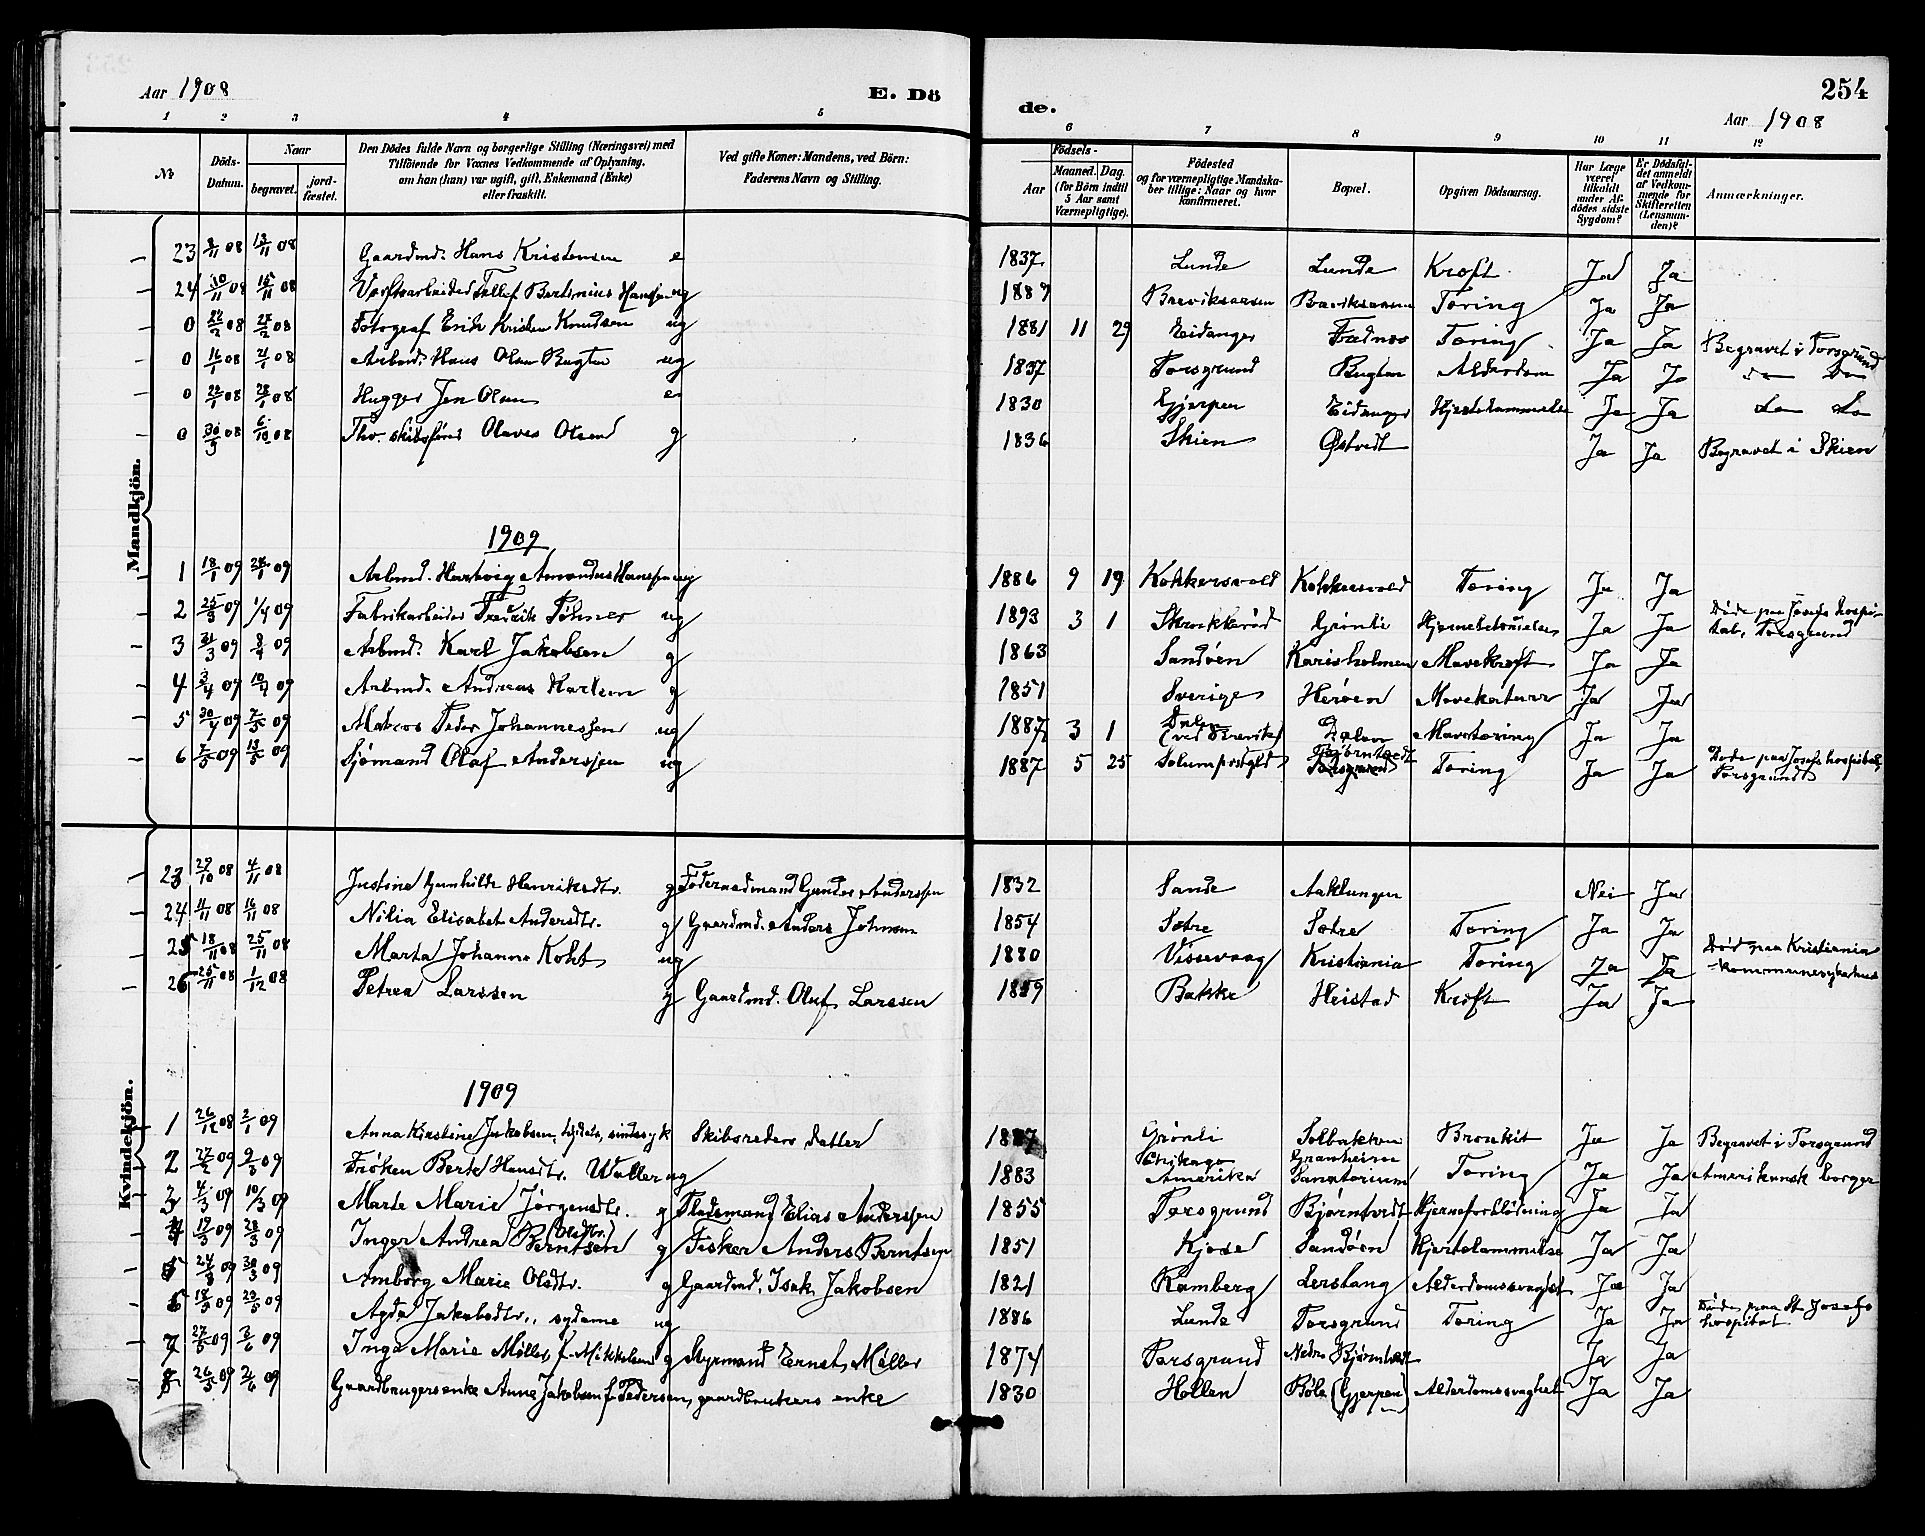 254
Aar 1908 E. Dö de. Aar 1908
1 2 3 4 5 6 7 8 9 10 11 12
No
Döds-Datum.
Naar
begravet.
jord-fæstet.
Den Dödes fulde Navn og borgerlige Stilling (Næringsvei) med
Tilföiende for Voxnes Vedkommende af Oplysning,
om han (hun) var ugift, gift, Enkemand (Enke)
eller fraskilt.
Ved gifte Koner: Mandens, ved Börn:
Faderens Navn og Stilling.
Födsels-
Aar
Maaned. Dag.
(for Börn indtil
5 Aar samt
Værnepligtige).
Födested
og for værnepligtige Mandska-
ber tillige: Naar og hvor
konfirmeret.
Bopæl.
Opgiven Dödsaarsag.
Har Læge
været
tilkaldt
under Af-
dödes sidste
Sygdom?
Er Dödsfal-
det anmeldt
af Vedkom-
mende for
Skifteretten
(Lensman-
den)?
Anmærkninger.
Mandkjön.
23 9/11 08 13/11 08 Gaardmd. Hans Kristensen e 1837 Lunde Lunde Kræft Ja Ja
24 10/11 08 15/11 08 Værftsarbeider Tellef Bertinius Hansen ug 1889 Breviksaasen Breviksaasen Tæring Ja Ja
0 22/2 08 28/2 08 Fotograf Erik Kristen Knudsen ug 1881 11 29 Eidanger Tæring Ja Ja Begravet i Porsgrund
0 16/1 08 21/1 08 Arbmd. Hans Olsen Bugten ug 1837 Porsgrund Bugten Alderdom Ja Ja Do Do
0 22/1 08 28/1 08 Hugger Jen Olsen e 1830 Gjerpen Eidanger Hjertelammelse Ja Ja Do Do
0 30/9 08 6/10 08 Fhv. skibsfører Olaves Olsen g 1836 Skien Østvedt Ja Ja Begravet i Skien
1909
1 18/1 09 24/1 09 Arbmd. Hartvig Amandus Hansen ug 1886 9 19 Kokkersvold Kokkersvold Tæring Ja Ja
2 25/3 09 1/4 09 Fabrikarbeider Fredrik Pöhner ug 1893 3 1 Skrukkerød Grønli Ja Ja Døde paa Josefs hospi-
tal, Porsgrund
3 31/3 09 8/4 09 Arbmd. Karl Jakobsen g 1863 Sandøen Karisholmen Mavekræft Ja Ja
4 3/4 09 10/4 09 Arbmd. Andreas Karlsen g 1851 Sverige Herøen Mavekatarr Ja Ja
5 30/4 09 7/5 09 Matros Peder Johannessen ug 1887 3 1 Dalen
(ved Brevik) Dalen Mavetæring Ja Ja
6 7/5 09 13/5 09 Sjømand Olaf Anderssen ug 1887 5 25 Solumprægld Bjørntvedt
Porsgrund Tæring Ja Ja Døde paa Josefs hospital,
Porsgrund
Kvindekjön.
23 29/10 08 4/11 08 Justine Gunhilde Henriksdtr. g Føderaadmand Gunder Anderssen 1832 Sande Aaklungen Nei Ja
24 11/11 08 16/11 08 Nilia Elisabet Andersdtr. g Gaardmd. Anders Johnsen 1854 Sætre Sætre Tæring Ja Ja
25 18/11 08 25/11 08 Marta Johanne Koht ug 1880 Vissevaag Kristiania Tæring Ja Ja Død paa Kristiania
kommunesykehus
26 25/11 08 1/12 08 Petrea Larssen g Gaardmd. Oluf Larssen 1859 Bakke Heistad Kræft Ja Ja
1909
1 26/12 08 2/1 09 Anna Kirstine Jakobsen, sindssyk Skibsreders datter Grønli Solbakken Bronkit Ja Ja Begravet i Porsgrund
2 27/2 09 9/3 09 Frøken Berte Hansdtr. Waller ug 1883 Chikago
Amerika Granheim
Sanatorium Tæring Ja Ja Amerikansk borger
3 4/3 09 10/3 09 Marte Marie Jørgensdtr. g Pladsmand Elias Anderssen 1855 Porsgrund Bjørntvedt Hjerneforblødning Ja Ja
4 19/3 09 28/3 09 Inger Andrea Berntsen g Fisker Anders Berntsen 1851 Kjøse Sandøen Hjertelammelse Ja Ja
5 24/3 09 30/3 09 Amborg Marie Olsdtr. g Gaardmd. Isak Jakobsen 1821 Ramberg Lerstang Alderdomssvaghet Ja Ja
6 18/5 09 20/5 09 Agda Jakobsdtr., sydame ug 1886 Lunde Porsgrund Tæring Ja Ja Døde paa St. Josefs
hospital
7 27/5 09 2/6 09 Inga Marie Møller f. Mikkelsen g Styrmand Ernst Møller 1874 Porsgrund Nedre Bjørntvedt Ja Ja
8 26/5 09 2/6 09 Gaardbrugersenke Anne Jakobsen f. Pedersen, gaardbrukers enke 1830 Hollen Bøle (Gjerpen) Alderdomssvaghet Ja Ja